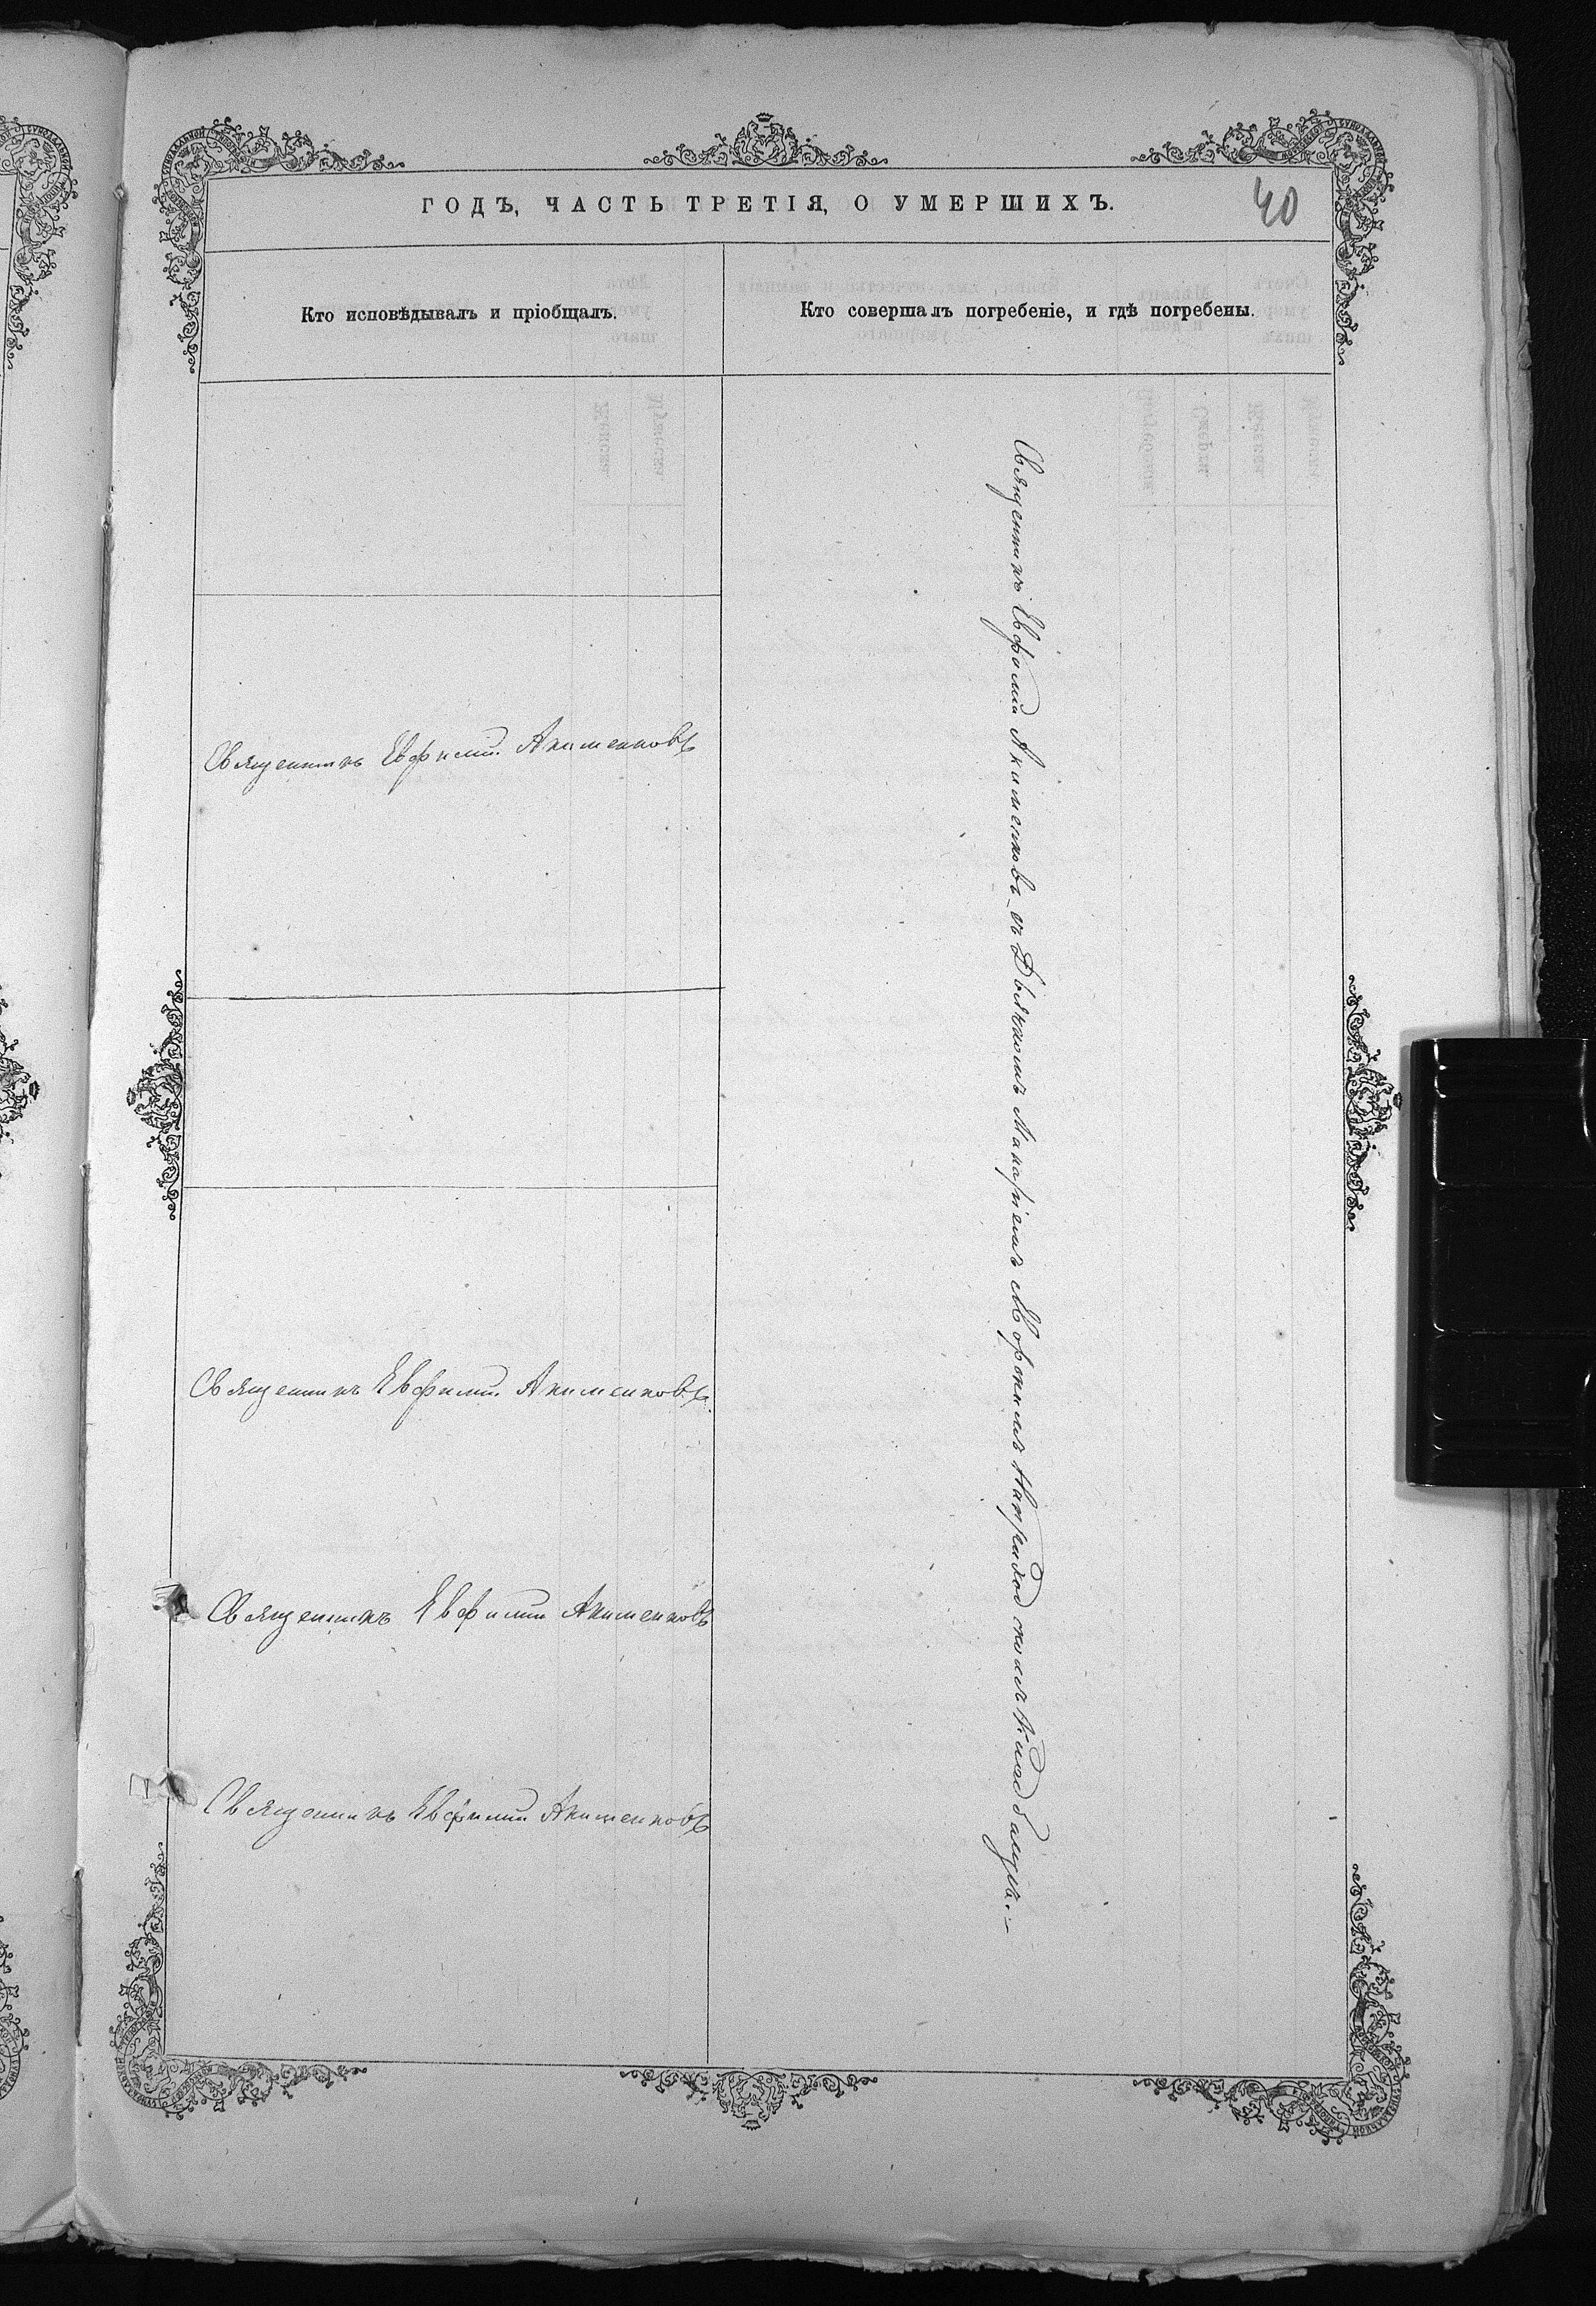 ГОДЪ, ЧАСТЬ ТРЕТІЯ, О УМЕРШИХЪ.
40
Кто исповѣдывалъ и пріобщалъ.
Кто совершалъ погребеніе, и гдѣ погребены.
Священникъ Евфимій Акименковъ
Священникъ Евфимій Акименковъ
Священникъ Евфимій Акименковъ
Священникъ Евфимій Акименковъ
Священникъ Евфимій Акименковъ съ Дьякономъ Макаріемъ на приходскомъ кладбищѣ.